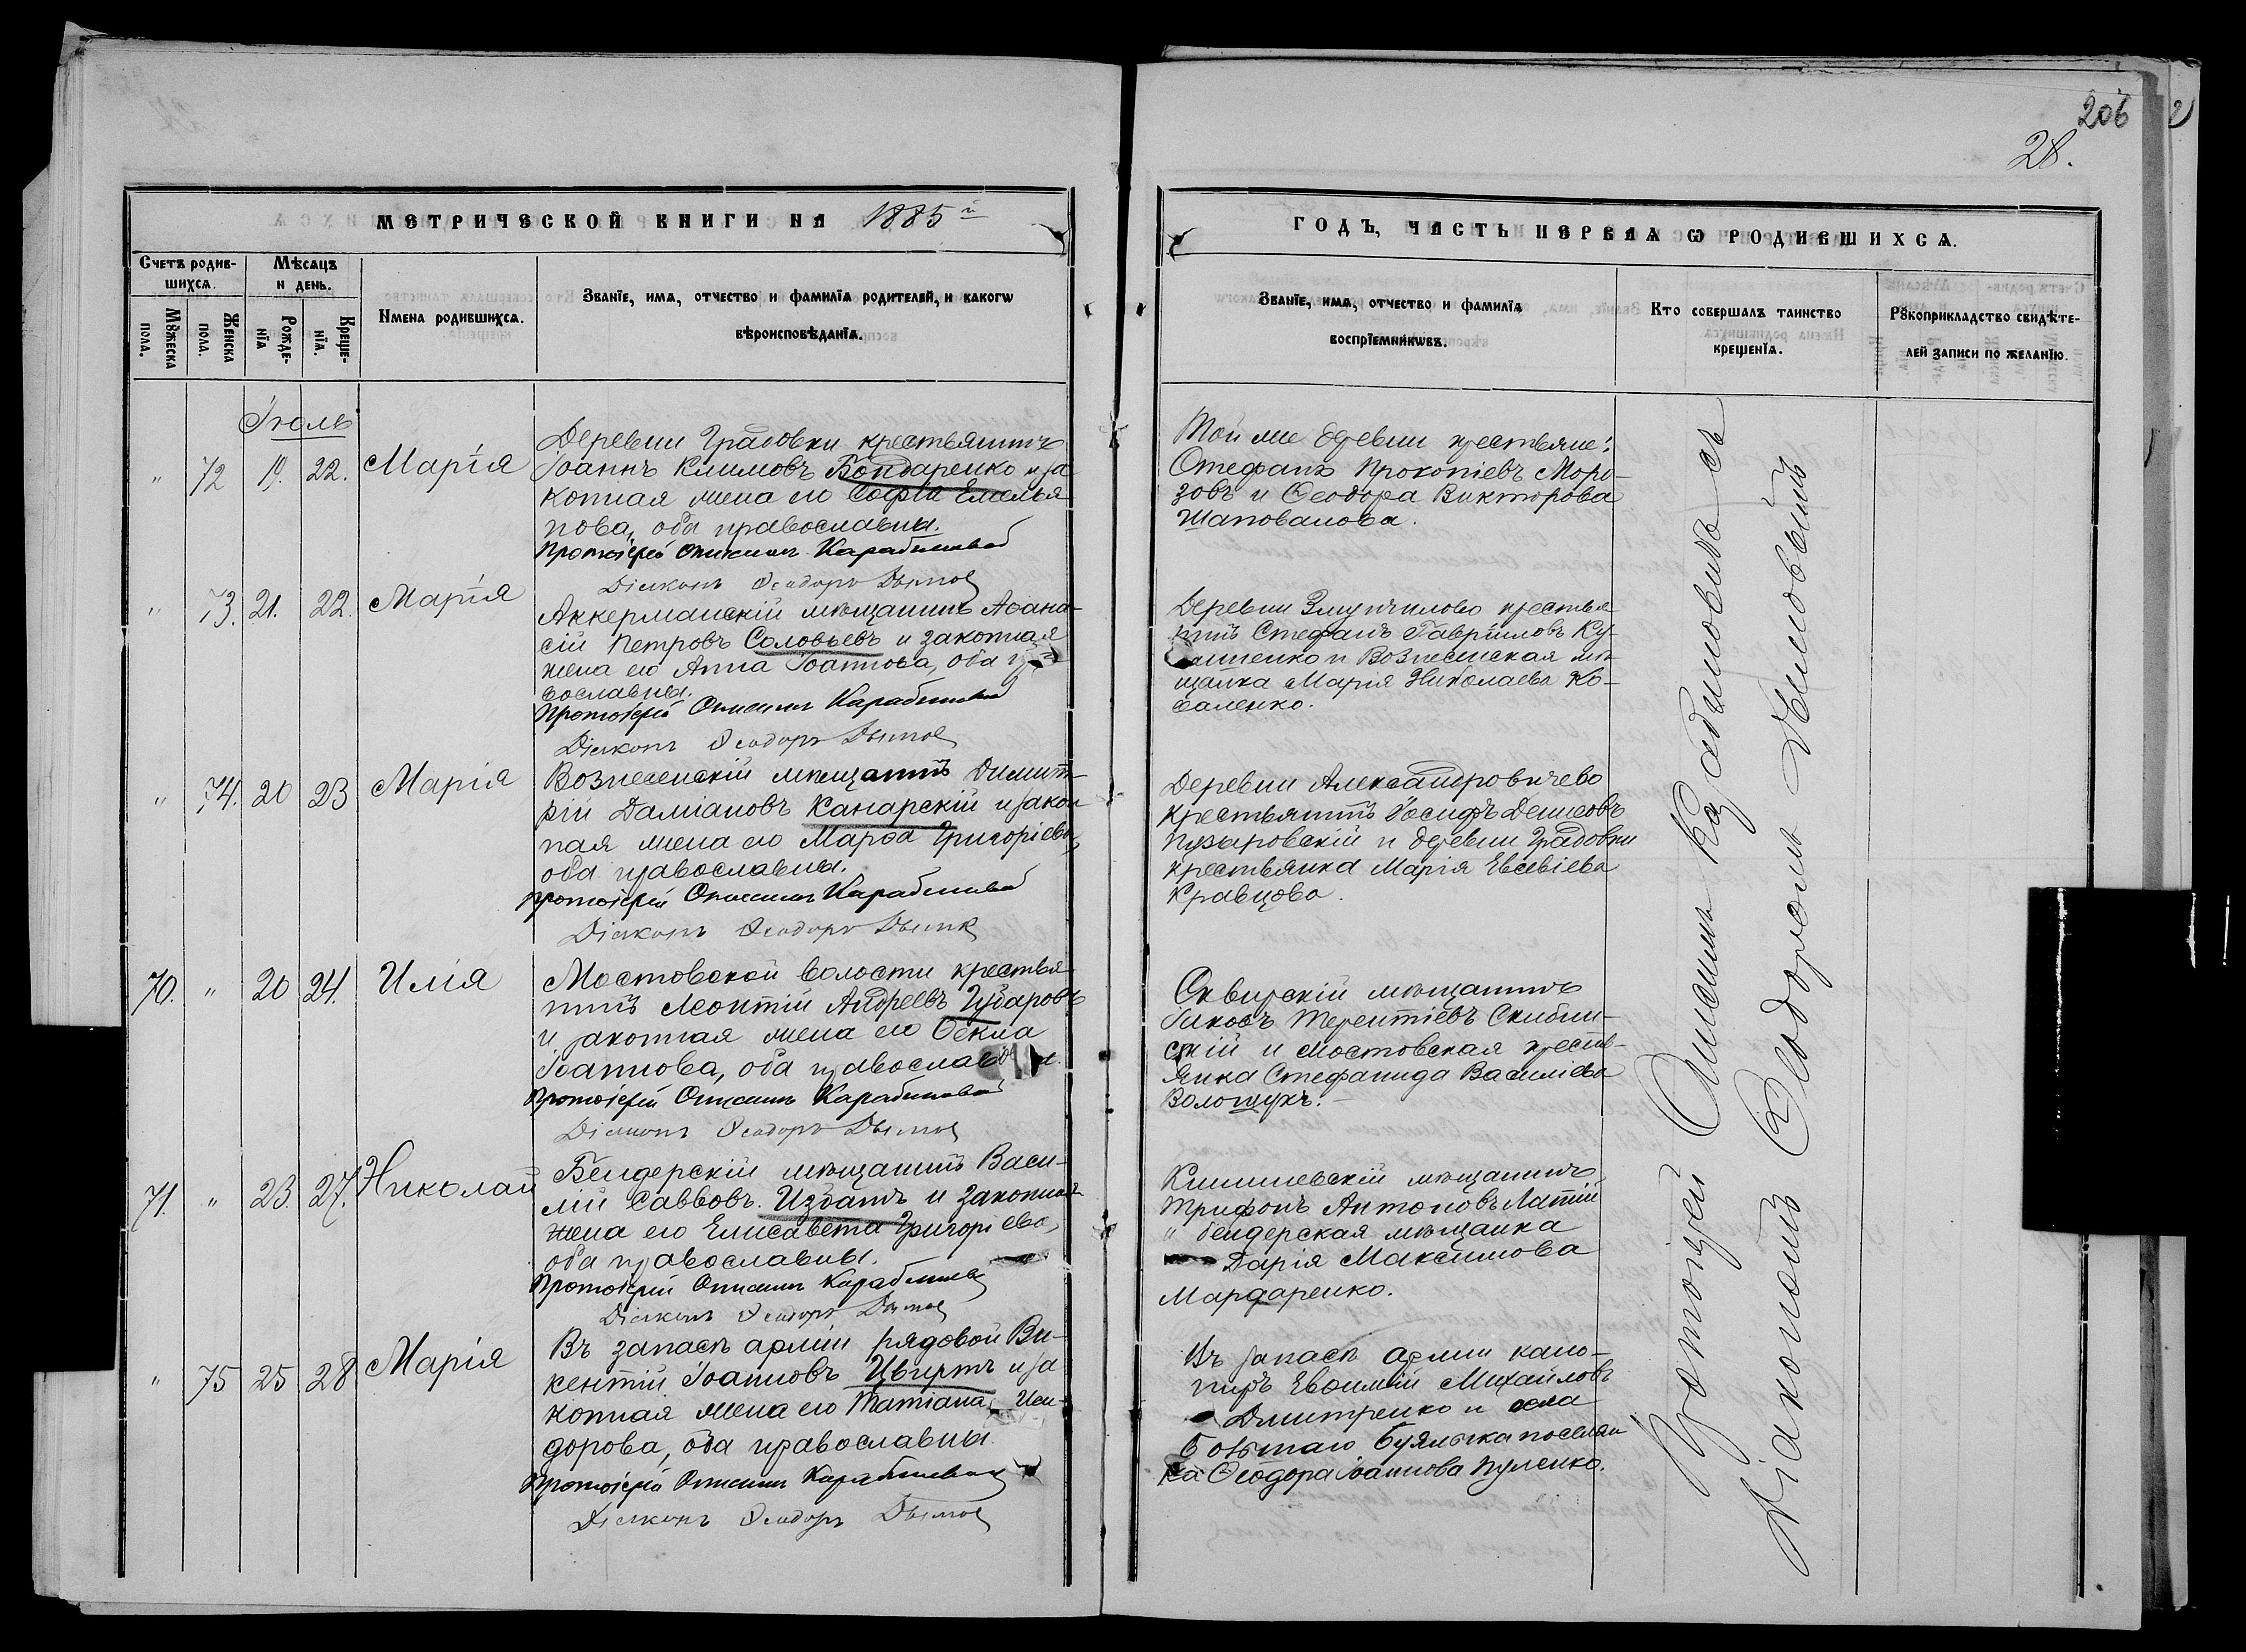 206
28.
МЕТРИЧЕСКОЙ КНИГИ НА 1885й
ГОДЪ, ЧАСТЬ ПЕРВАЯ Ѡ РОДИВШИХСѦ.
Счетъ родив-
шихсѧ.
Мѣсѧцъ
и день.
Мꙋжеска
пола.
Женска
пола.
Рожде-
нїѧ
Креще-
нїѧ.
Имена родившихсѧ.
Званїе, имѧ, отчество и фамилїѧ родителей, и какогѡ
вѣроисповѣданїѧ.
Званїе, имѧ, отчество и фамилїѧ
воспрїемникѡвъ.
Кто совершалъ таинство
крещенїѧ.
Рꙋкоприкладство свидѣте-
лей записи по желанїю.
Іюль
" 72 19. 22. Марія
Деревни Градовки крестьянинъ
Іоаннъ Климовъ Бондаренко и за
конная жена его Софія Емелья
нова, оба православны.
Протоіерей Онисимъ
Діяконъ Ѳеодоръ
Той же деревни крестьяне:
Стефанъ Прокопіевъ Моро-
зовъ и Ѳеодора Викторова
Шаповалова.
" 73. 21. 22. Марія
Аккерманскій мѣщанинъ Аѳана-
сій Петровъ Соловьевъ и законная
жена его Анна Іоаннова, оба
вославны.
Протоіерей Онисимъ
Діяконъ Ѳеодоръ
Деревни крестья
нинъ Стефанъ Гавріиловъ Ку-
и Вознесенская мѣ-
щанка Марія Николаева Ко-
валенко.
" 74. 20 23 Марія
Вознесенскій мѣщанинъ Димит-
рій Даміановъ Канарскій и закон
ная жена его Марѳа Григоріева,
оба православны.
Протоіерей Онисимъ
Діяконъ Ѳеодоръ
Деревни Александровичево
крестьянинъ Іосифъ Денисовъ
Пузыровскій и деревни Градовки
крестьянка Марія Евсевіева
Кравцова.
70. " 20 24. Илія
Мостовской волости крестья
нинъ Леонтій Андреевъ
и законная жена его Ѳекла
Іоаннова, оба православны.
Протоіерей Онисимъ
Діяконъ Ѳеодоръ
Сквирскій мѣщанинъ
Іаковъ Терентіевъ Скибин-
скій и Мостовская крест-
янка Стефанида Василіева
Волощукъ.
71. " 23. 27. Николай
Бендерскій мѣщанинъ Васи-
лій Саввовъ Избашъ и законная
жена его Елисавета Григоріева,
оба православны.
Протоіерей Онисимъ
Діяконъ Ѳеодоръ
Кишиневскій мѣщанинъ
Трифонъ Антоновъ Латій
" бендерская мѣщанка
Дарія Максимова
Мардаренко.
" 75 25 28 Марія
Въ запасѣ арміи рядовой Ви-
кентій Іоанновъ Цвиртъ и за
конная жена его Татіана Иси-
дорова, оба православны
Протоіерей Онисимъ
Діяконъ Ѳеодоръ
Въ запасѣ арміи кано-
ниръ Евѳимій Михайловъ
Дмитренко и села
Большаго Буялыка поселян
ка Ѳеодора Іоаннова Пуленко.
Протоіерей Онисимъ съ
Діакономъ Ѳеодоромъ